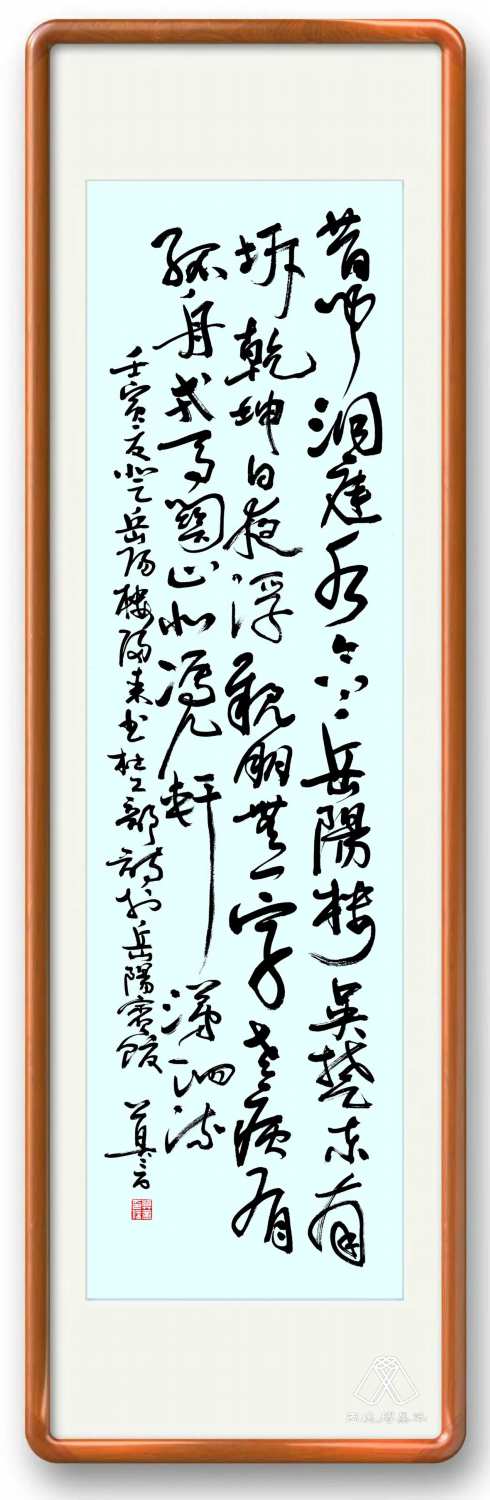 昔聞洞庭水今上岳陽樓吳楚东南
坼乾坤日夜浮親朋無一字老病有
孤舟戎馬關山北凴軒涕泗流
壬寅夏登岳阳樓歸来书杜工部詩於岳陽賓館 莫言